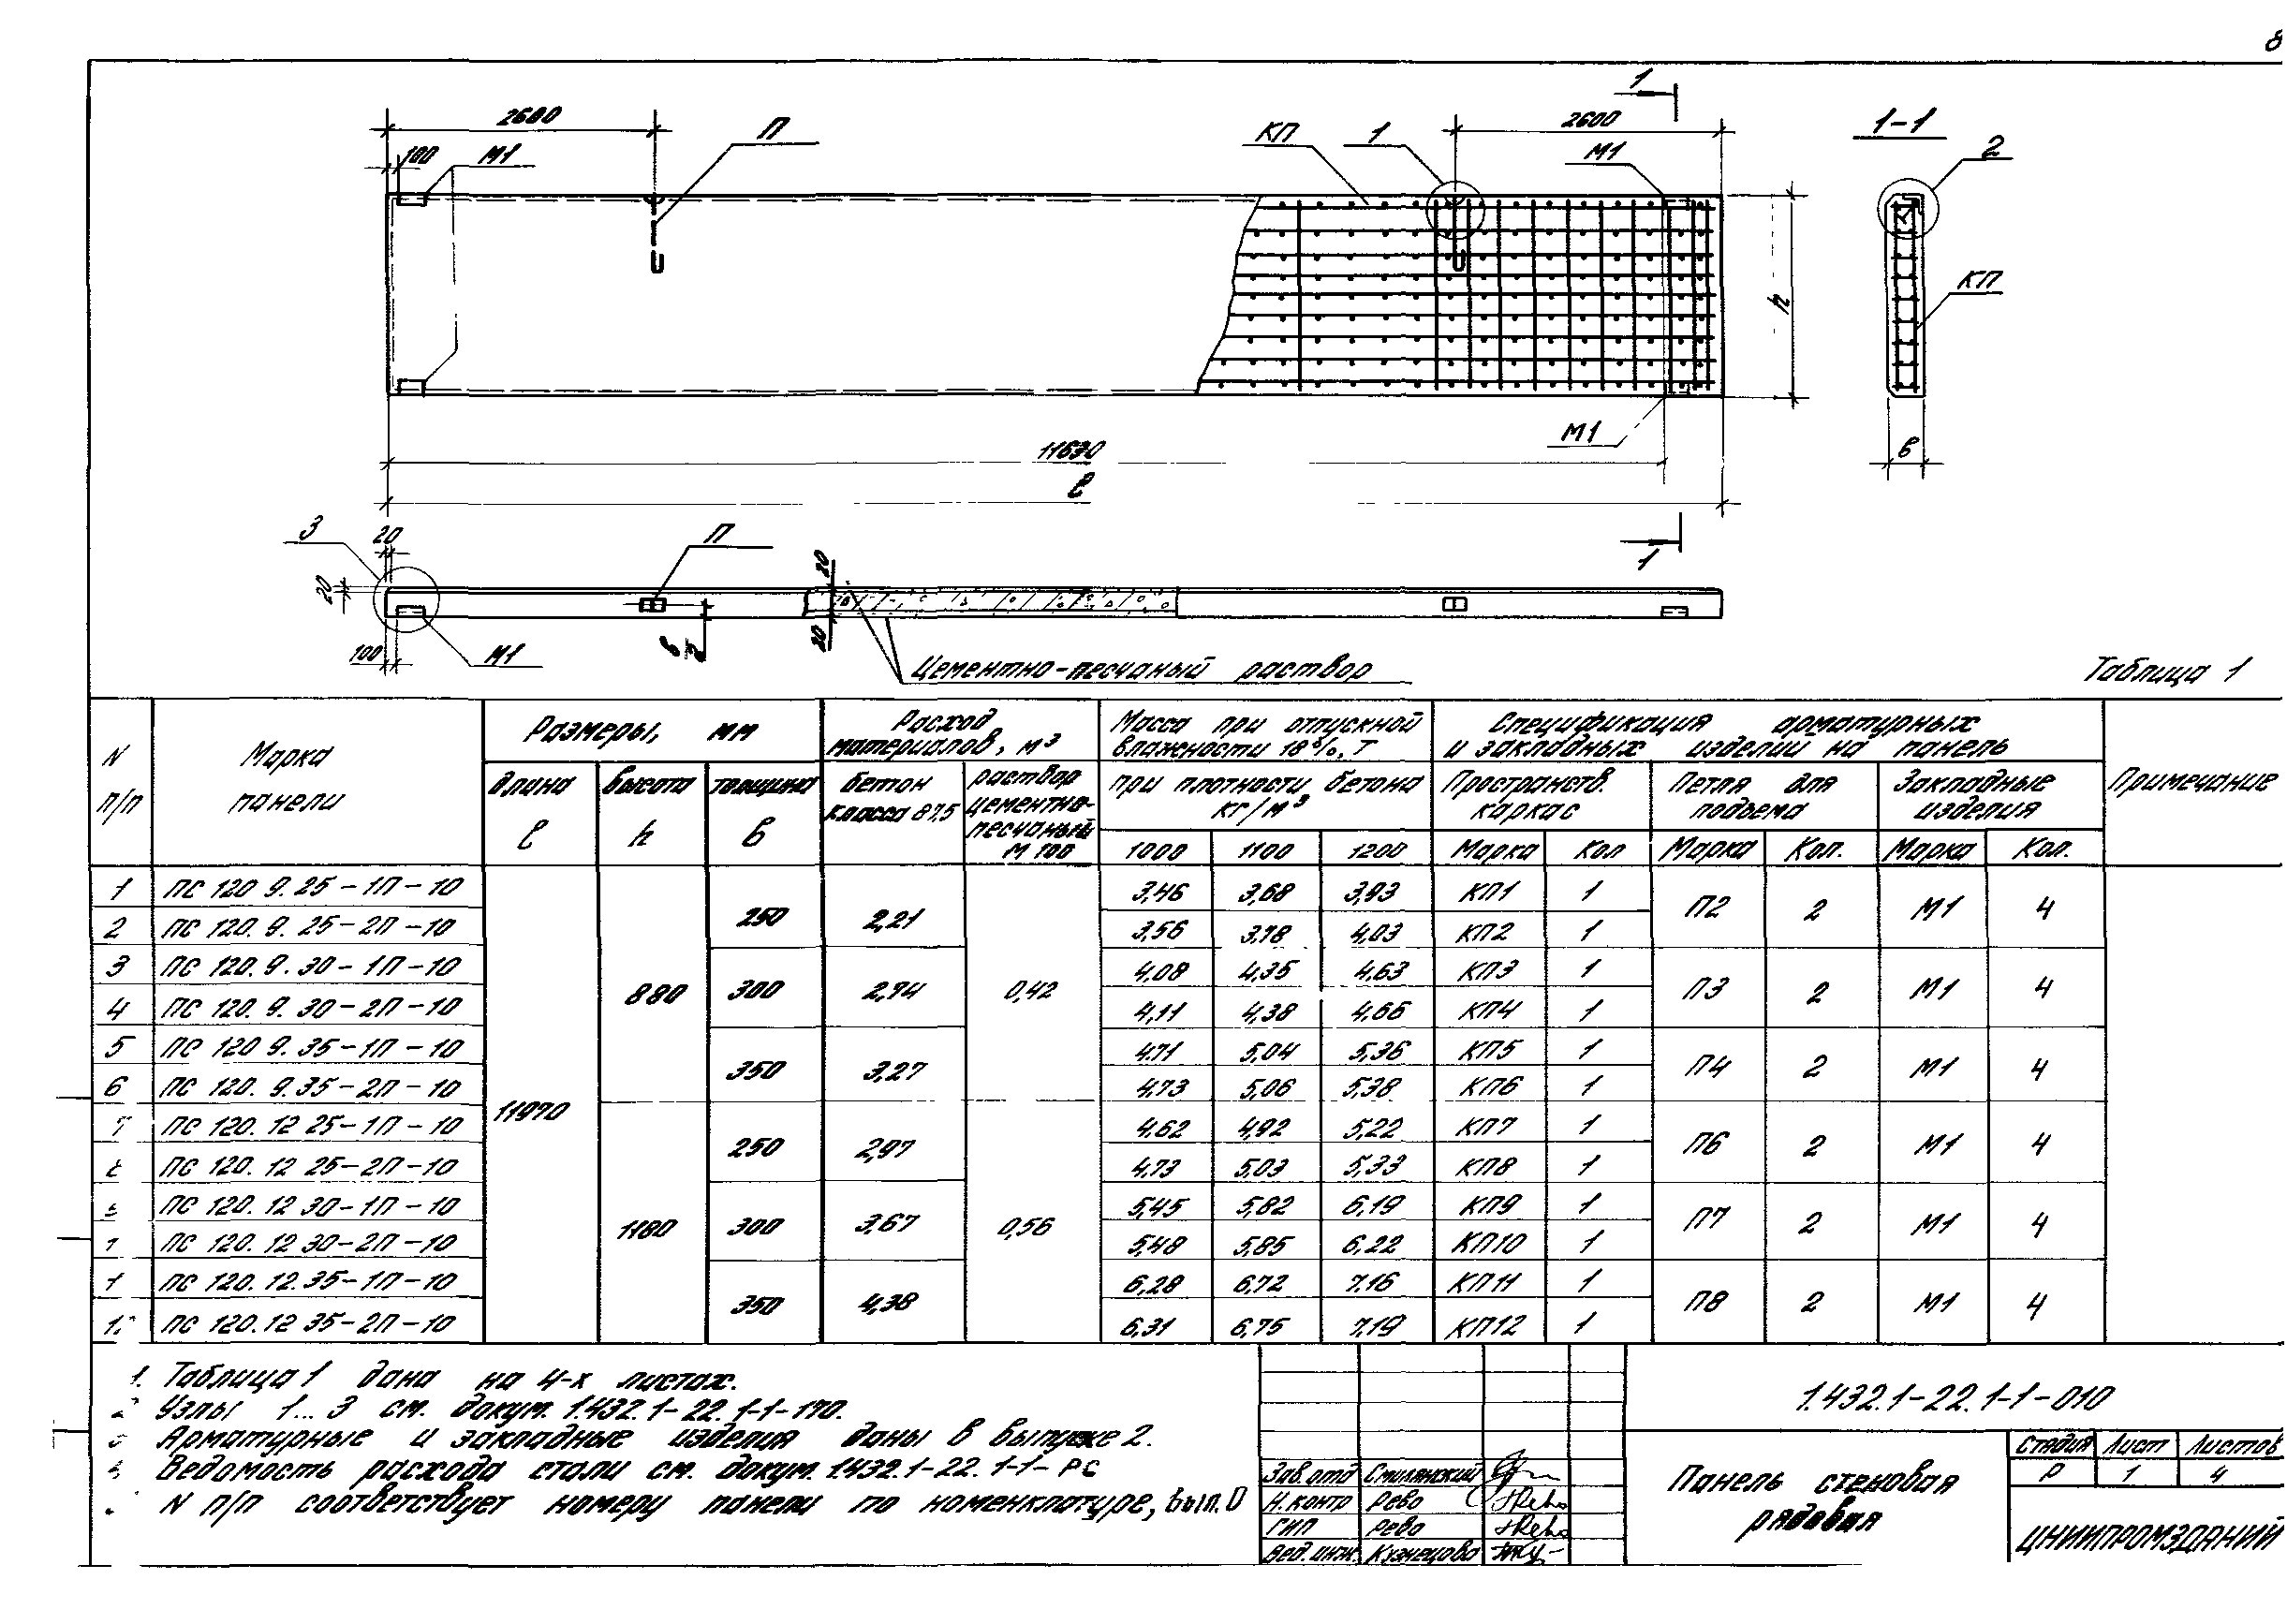 8
2600 П КП 1 2600 1 1-1
100 М1 М1 2
КП
h
М1
11630 в
ℓ
3 20 П 20 1
20
100 М1 в/2 20
Цементно-песчаный раствор
Таблица 1
N п/п Марка панели Размеры, мм Расход материалов, м³ Масса при отпускной влажности 18%, Т Спецификация арматурных и закладных изделий на панель Примечание
длина ℓ высота h толщина в бетон класса В7,5 раствор цементно-песчаный М 100 при плотности бетона кг/м³ Пространств. каркас Петля для подъема Закладные изделия
1000 1100 1200 Марка Кол Марка Кол. Марка Кол.
1 ПС 120 9.25-1П-10 11970 880 250 2,21 0,42 3,46 3,68 3,93 КП1 1 П2 2 М1 4
2 ПС 120.9.25-2П-10 3,56 3,78 4,03 КП2 1
3 ПС 120.9.30-1П-10 300 2,74 4,08 4,35 4,63 КП3 1 П3 2 М1 4
4 ПС 120.9.30-2П-10 4,11 4,38 4,66 КП4 1
5 ПС 120 9.35-1П-10 350 3,27 4,71 5,04 5,36 КП5 1 П4 2 М1 4
6 ПС 120.9.35-2П-10 4,73 5,06 5,38 КП6 1
7 ПС 120.12 25-1П-10 1180 250 2,97 0,56 4,62 4,92 5,22 КП7 1 П6 2 М1 4
ПС 120.12 25-2П-10 4,73 5,03 5,33 КП8 1
ПС 120.12 30-1П-10 300 3,67 5,45 5,82 6,19 КП9 1 П7 2 М1 4
ПС 120.12 30-2П-10 5,48 5,85 6,22 КП10 1
ПС 120.12.35-1П-10 350 4,38 6,28 6,72 7,16 КП11 1 П8 2 М1 4
ПС 120.12 35-2П-10 6,31 6,75 7,19 КП12 1
1. Таблица 1 дана на 4-х листах.
2 Узлы 1...3 см. докум. 1.432.1-22.1-1-170.
Арматурные и закладные изделия даны в выпуске 2.
Ведомость расхода стали см. докум. 1.432.1-22.1-1-РС
N п/п соответствует номеру панели по номенклатуре, вып. 0
1.432.1-22.1-1-010
Зав.отд Смилянский
Н.контр Рево
ГИП Рево
Вед.инж. Кузнецова
Панель стеновая
рядовая
Стадия Лист Листов
Р 1 4
ЦНИИПРОМЗДАНИЙ